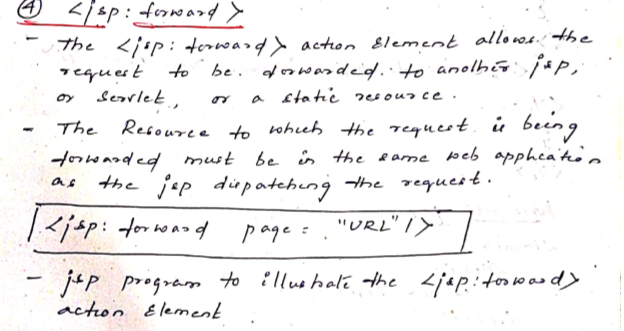 ④ <jsp: forward>
- The <jsp: forward> action element allows the
request to be forwarded to another jsp,
or servlet, or a static resource.
- The Resource to which the request is being
forwarded must be in the same web application
as the jsp dispatching the request.
<jsp: forward page = "URL" />
- jsp program to illustrate the <jsp: forward>
action Element